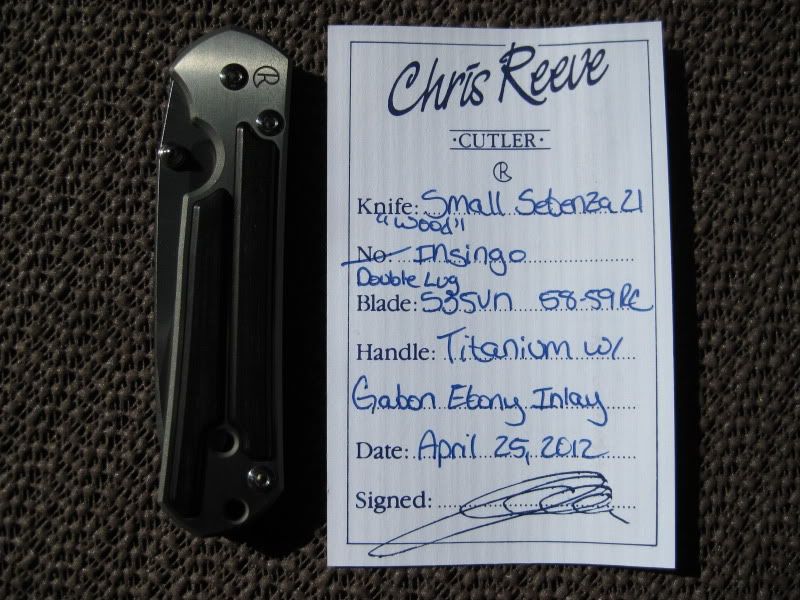 Chris Reeve
·CUTLER·
R
Knife: Small Sebenza 21
"Wood"
No: Insingo
Double Lug
Blade: S35VN 58-59 RC
Handle: Titanium w/
Gabon Ebony Inlay
Date: April 25, 2012
Signed: